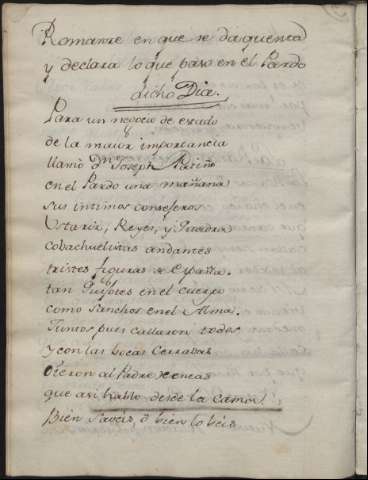 Romanze en que se da quenta
y declara lo que paso en el Pardo
dicho Dia.
Para un negocio de estado
de la maior importancia
llamò Dn. Joseph Patiño
en el Pardo una mañana
sus intimos consejeros
Ustariz, Reyes, y
cobachuelistas andantes
tristes figuras de España.
tan Quijotes en el cuerpo
como Sanchos en el Alma.
Juntos pues callaron todos
y con las bocas Cerradas
Oieron al Padre
que asi hablò desde la Cama.
Bien saveis, ò bien lo veis